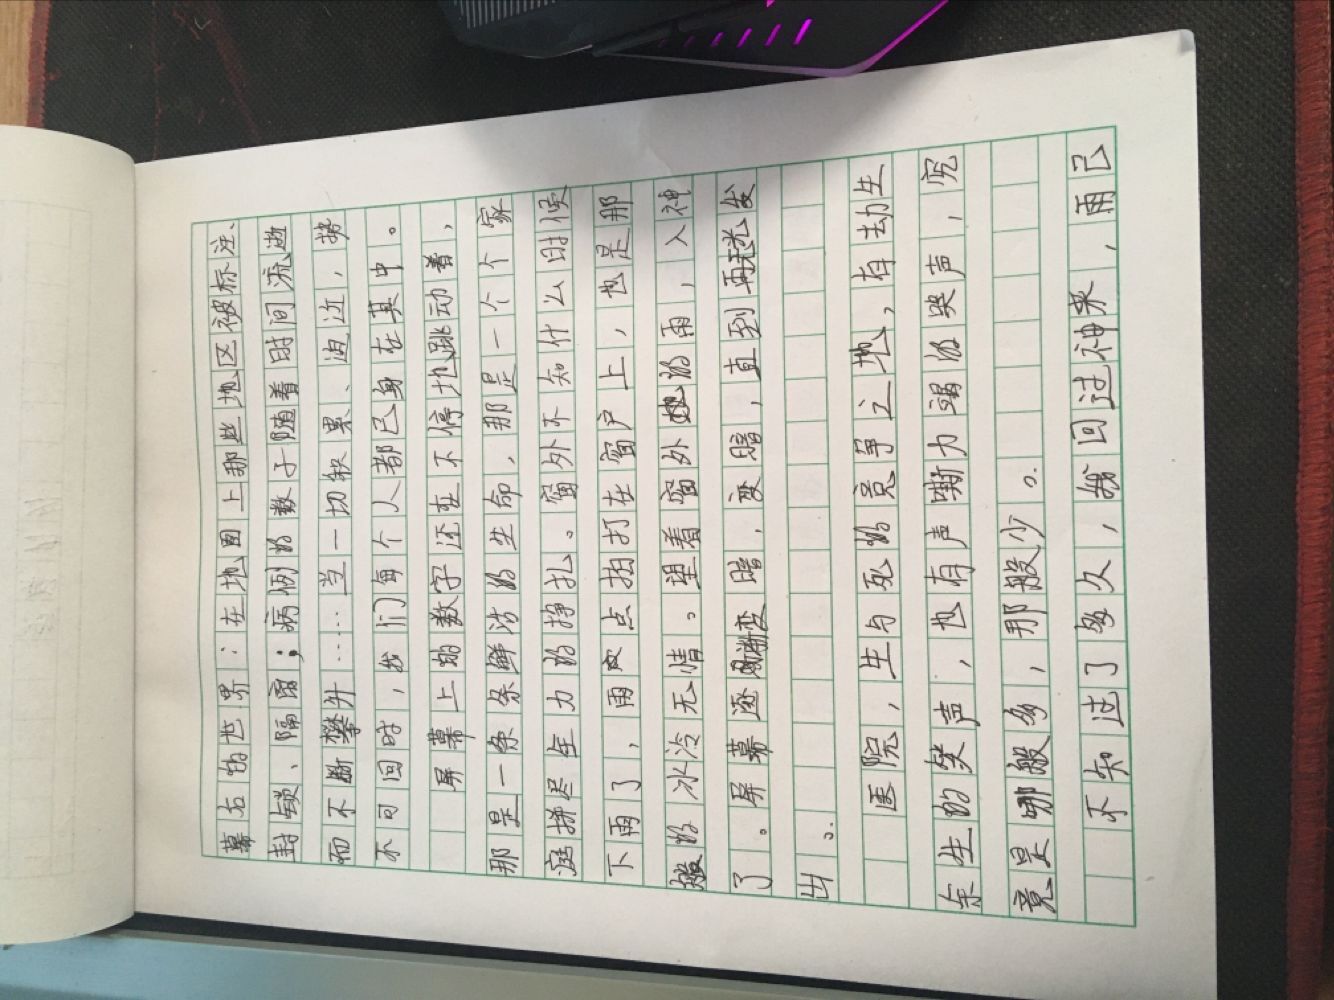 幕右的世界：在地图上那些地区被标注、
封锁、隔离；病例的数字随着时间流逝
而不断攀升……当一切积累、迫近，势
不可回时，我们每个人都已身在其中。
屏幕上的数字还在不停地跳动着，
那是一条条鲜活的生命，那是一个个家
庭拼尽全力的挣扎。窗外不知什么时候
下雨了，雨点拍打在窗户上，也是那
般的冰冷无情。望着窗外的雨，入神
了。屏幕逐渐变暗，变暗，直到再无光发
出。
医院，生与死的竞争之地，有劫生
余生的笑声，也有声嘶力竭的哭声，究
竟是哪般多，那般少。
不知过了多久，我回过神来，雨已